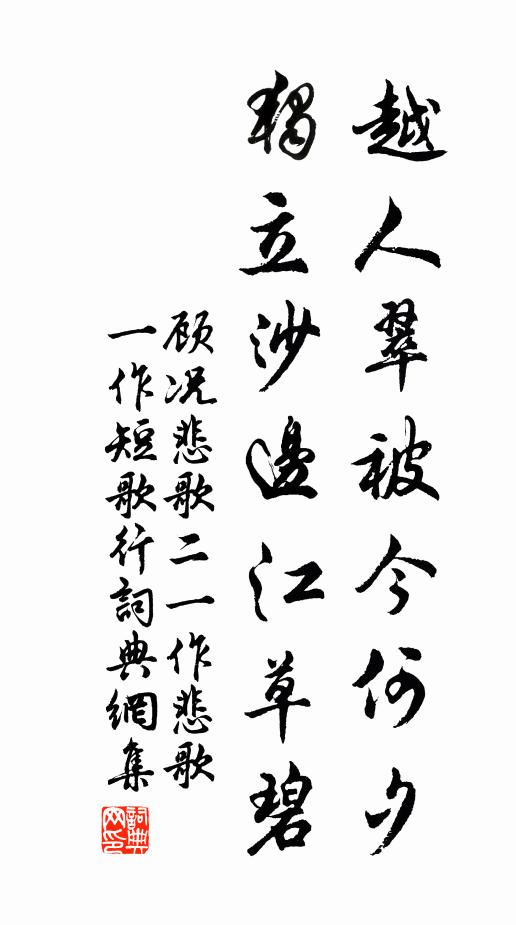 越人翠被今何夕
獨立沙邊江草碧
顾况悲歌二一作悲歌
一作短歌行詞典網集
詞典
网印